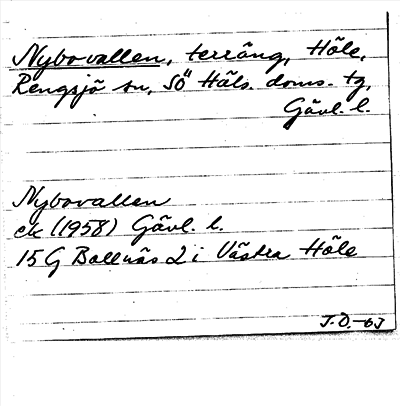 Nybovallen, terräng, Höle,
Rengsjö sn, SÖ Häls. doms. tg,
Gävl. l.
Nybovallen
ek (1958) Gävl. l.
15 G Bollnäs 2 i Västra Höle
J.O.-63